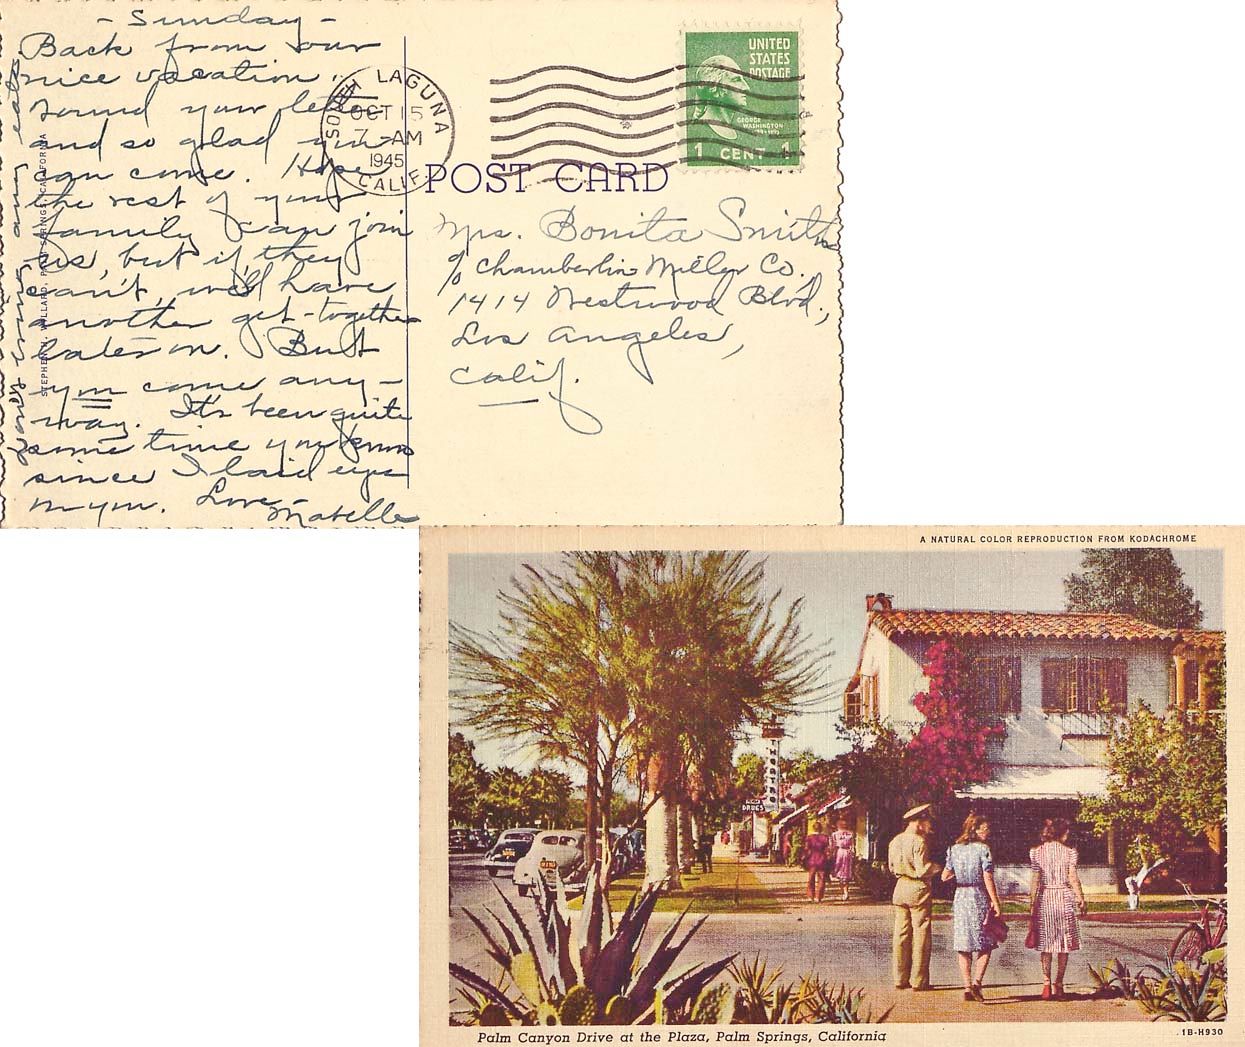 - Sunday -
Back from our
nice vacation.
Found your letter
and so glad you
can come. Hope
the rest of your
family can join
us, but if they
can't, we'll have
another get-together
later on. But
you come any-
way. It's been quite
some time you know
since I laid eyes
on you. Love -
Mabelle
STEPHEN H. WILLARD, PALM SPRINGS, CALIFORNIA
SOUTH LAGUNA
OCT 15
7 - AM
1945
CALIF.
UNITED
STATES
POSTAGE
GEORGE
WASHINGTON
1789-1797
1 CENT 1
POST CARD
Mrs. Bonita Smith
c/o Chamberlin Miller Co.
1414 Westwood Blvd.,
Los Angeles,
Calif.
A NATURAL COLOR REPRODUCTION FROM KODACHROME
DRUGS
Palm Canyon Drive at the Plaza, Palm Springs, California
1B-H930